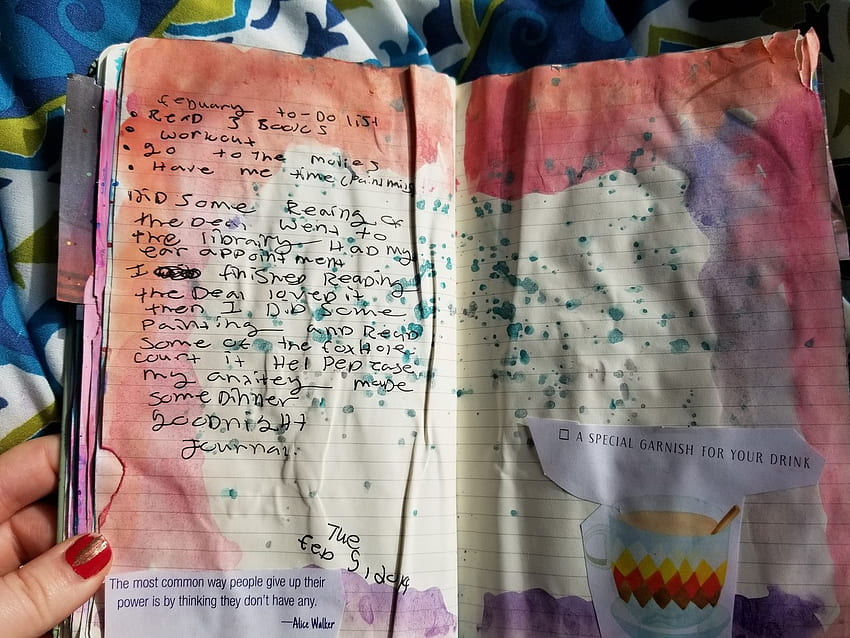 febuary to-Do list
• READ 3 Books
• workout
• go to the movies
• Have me time (Painting)
DiD Some Reaing of
the Dear went to
the library HaD my
ear appointment
I finished Reading
the Dear loved it
then I DiD Some
Painting and Read
some of the foxHole
court it HelPed ease
my anxitey made
some Dinner
goodnight
Journal.
Tue
feb 5, 2019
The most common way people give up their
power is by thinking they don't have any.
—Alice Walker
☐ A SPECIAL GARNISH FOR YOUR DRINK